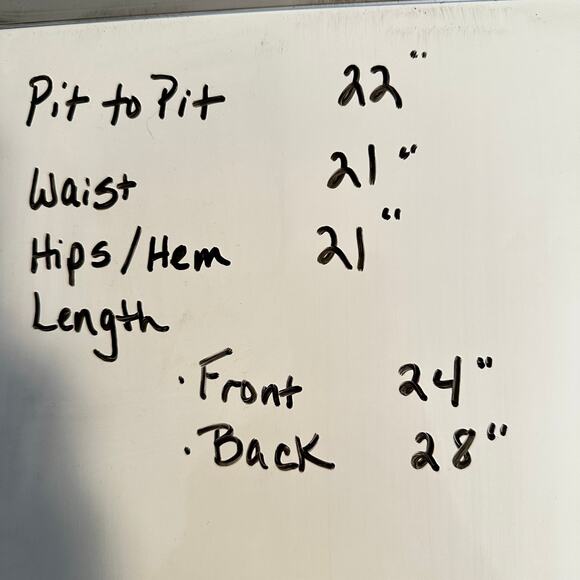 Pit to Pit 22"
Waist 21"
Hips/Hem 21"
Length
· Front 24"
· Back 28"